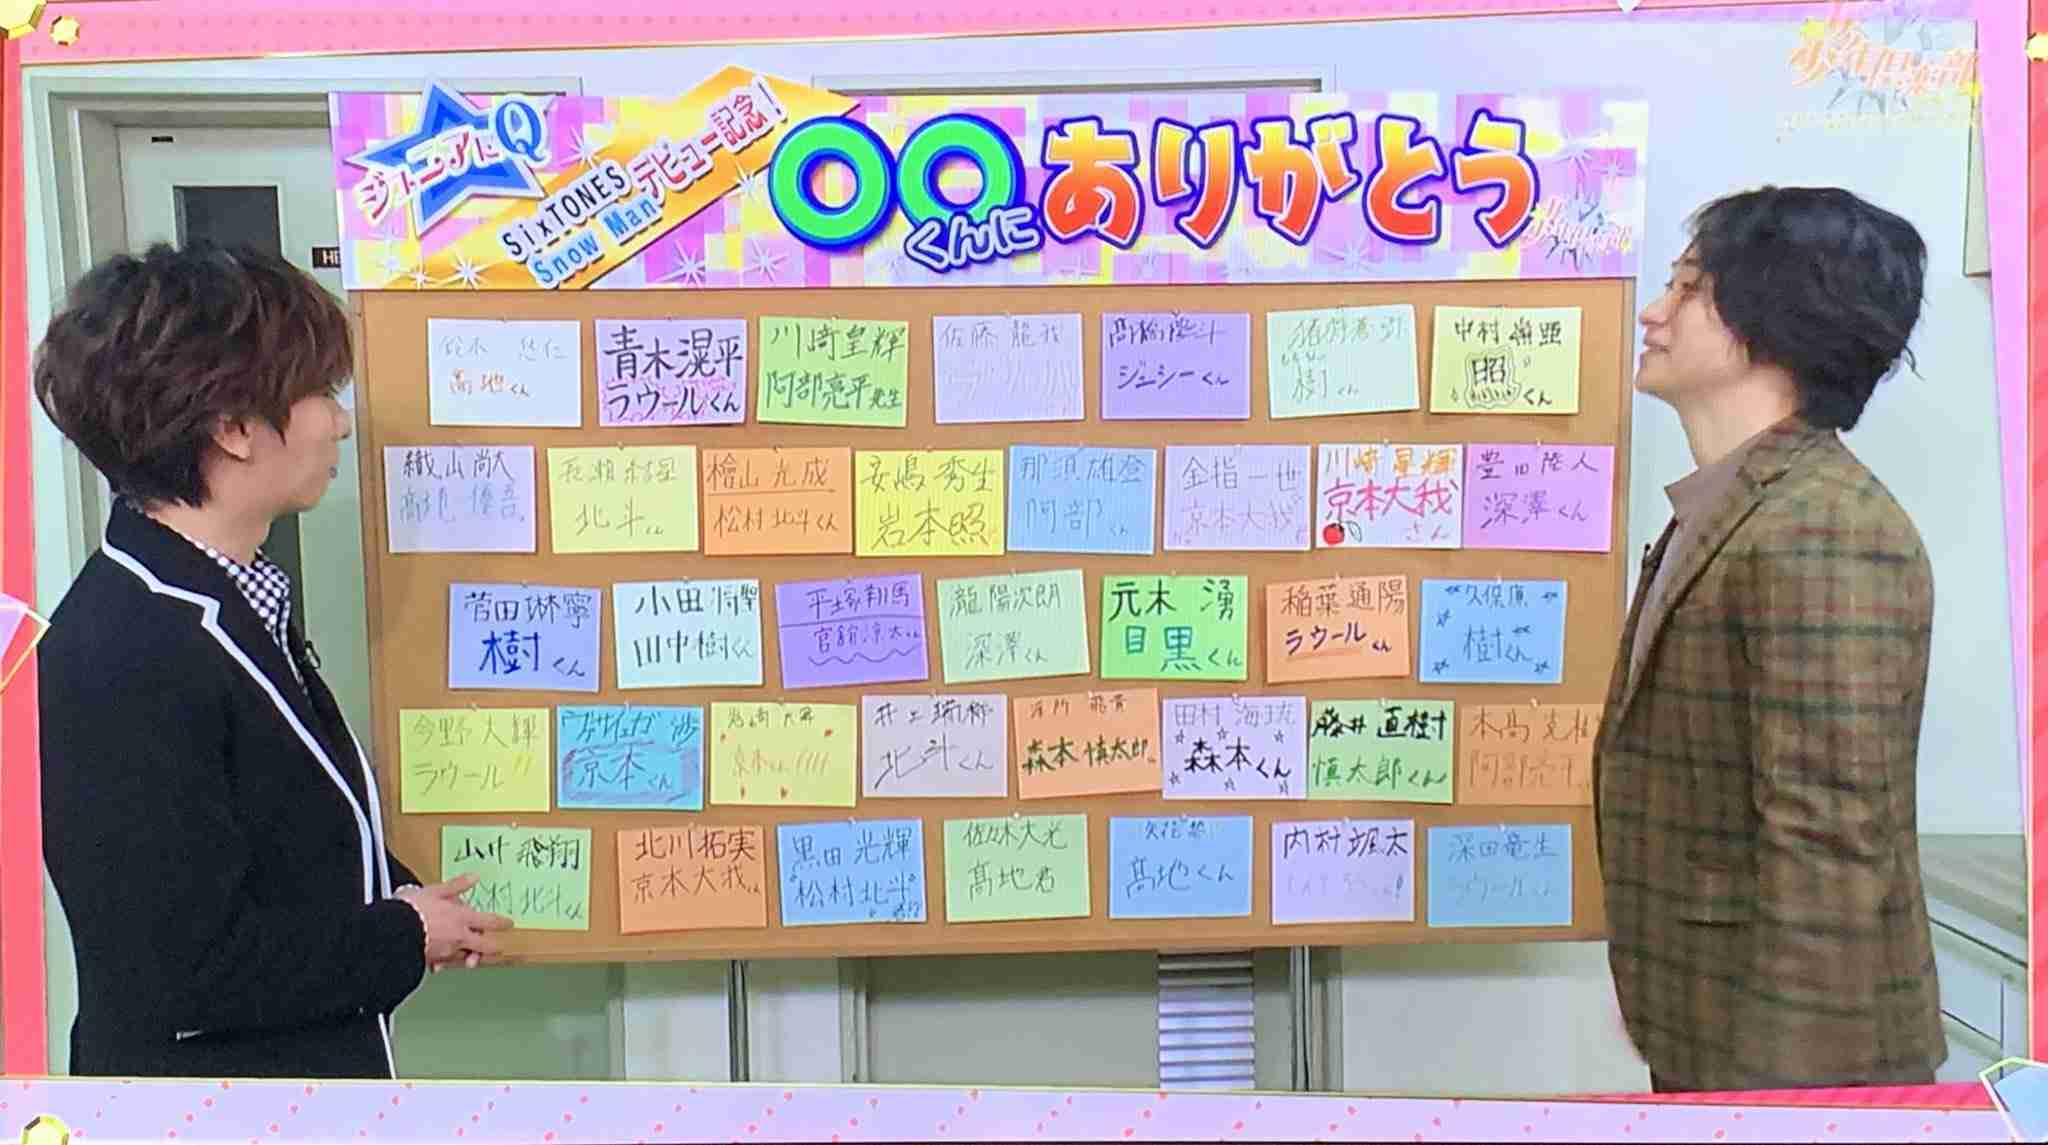 ジュニアにQ
SixTONES
Snow Man
デビュー記念!
〇〇くんにありがとう
少年倶楽部
HE
鈴木 悠仁
髙地くん
青木滉平
ラウールくん
川﨑皇輝
阿部亮平先生
佐藤 龍我
ラウール
髙橋優斗
ジェシーくん
猪狩蒼弥
樹くん
中村嶺亜
照くん
織山尚大
髙地優吾
長瀬結星
北斗くん
檜山光成
松村北斗くん
安嶋秀生
岩本照
那須雄登
阿部くん
金指一世
京本大我
川﨑星輝
京本大我さん
豊田陸人
深澤くん
菅田琳寧
樹くん
小田将聖
田中樹くん
平塚翔馬
宮舘涼太くん
瀧 陽次朗
深澤くん
元木 湧
目黒くん
稲葉通陽
ラウールくん
久保廉
樹くん
今野大輝
ラウール
ヴァサイェガ 渉
京本くん
岩﨑大昇
京本くん
井上瑞稀
北斗くん
浮所 飛貴
森本慎太郎
田村海琉
森本くん
藤井直樹
慎太郎くん
本髙克樹
阿部亮平
山井飛翔
松村北斗くん
北川拓実
京本大我くん
黒田光輝
松村北斗
佐々木大光
髙地君
髙地くん
内村颯太
深田竜生
ラウールくん